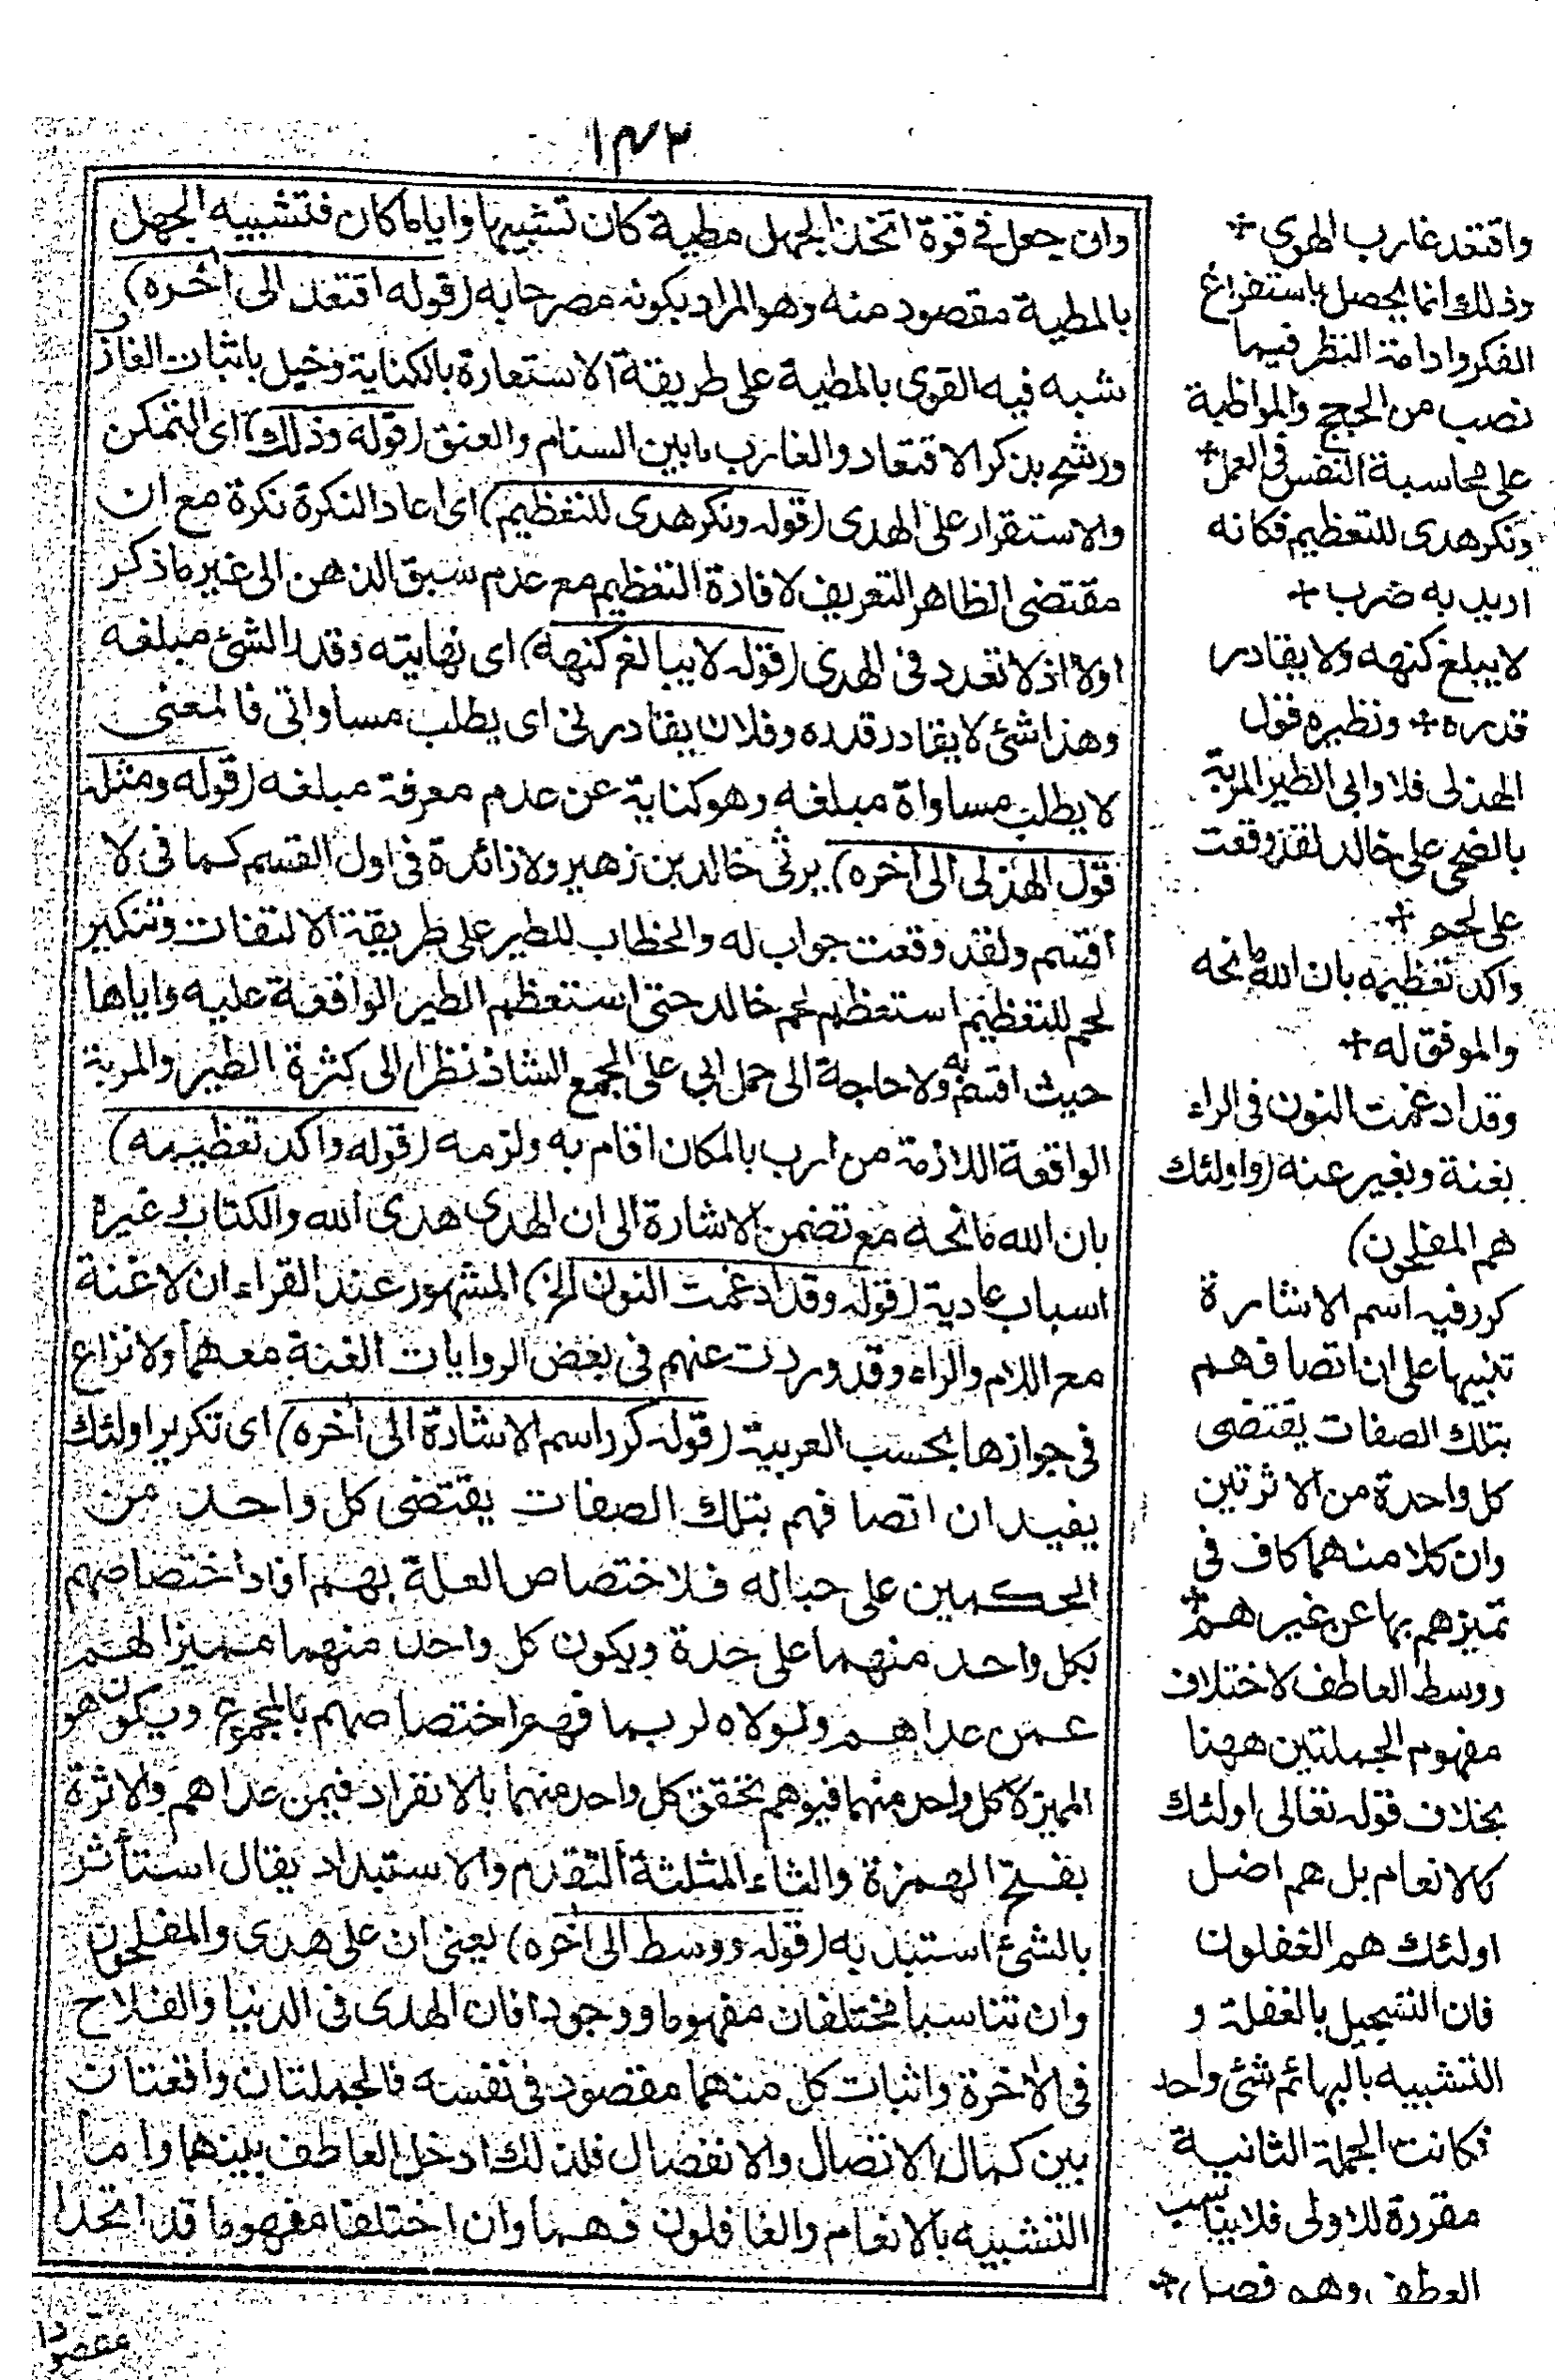 ١٤٢
وان جعل فى قوة اتخذ الجهل مطية كان تشبيها وايا ما كان فتشبيه الجهل
بالمطية مقصود منه وهو المراد بكونه مصرحا به (قوله اقتعد الى اخره)
شبه فيه الهوى بالمطية على طريقة الاستعارة بالكناية وخيل باثبات الغارب
ورشح بذكر الاقتعاد والغارب ما بين السنام والعنق (قوله وذلك) اى التمكن
والاستقرار على الهدى (قوله ونكر هدى للتعظيم) اى اعاد النكرة نكرة مع ان
مقتضى الظاهر التعريف لافادة التعظيم مع عدم سبق الذهن الى غير ما ذكر
اولا اذ لا تعدد فى الهدى (قوله لا يبالغ كنهه) اى نهايته وقدر الشئ مبلغه
وهذا شئ لا يقادر قدره وفلان يقادرنى اى يطلب مساواتى فالمعنى
لا يطلب مساواة مبلغه وهو كناية عن عدم معرفة مبلغه (قوله ومثله
قول الهذلى الى اخره) يرثى خالد بن زهير ولا زائدة فى اول القسم كما فى لا
اقسم ولقد وقعت جواب له والخطاب للطير على طريقة الالتفات وتنكير
لحم للتعظيم استعظم لحم خالد حتى استعظم الطير الواقعة عليه واياها
حيث اقسم به ولا حاجة الى حمل ابى على الجمع الشاذ نظرا الى كثرة الطير والمربة
الواقعة اللازمة من ارب بالمكان اقام به ولزمه (قوله واكد تعظيمه)
بان الله مانحه مع تضمن الاشارة الى ان الهدى هدى الله والكتاب وغيره
اسباب عادية (قوله وقد ادغمت النون الخ) المشهور عند القراء ان لا غنة
مع اللام والراء وقد وردت عنهم فى بعض الروايات الغنة معهما ولا نزاع
فى جوازها بحسب العربية (قوله كرر اسم الاشارة الى اخره) اى تكرير اولئك
يفيد ان اتصافهم بتلك الصفات يقتضى كل واحد من
الحكمين على حباله فلاختصاص العلة بهم افاد اختصاصهم
بكل واحد منهما على حدة ويكون كل واحد منهما مميزا لهم
عمن عداهم ولولاه لربما فهم اختصاصهم بالمجموع ويكون هو
المميز لا كل واحد منهما فيوهم تحقق كل واحد منهما بالانفراد فيمن عداهم والاثرة
بفتح الهمزة والثاء المثلثة التقدم والاستبداد يقال استأثر
بالشئ استبد به (قوله ووسط الى اخره) يعنى ان على هدى والمفلحون
وان تناسبا مختلفان مفهوما ووجودا فان الهدى فى الدنيا والفلاح
فى الاخرة واثبات كل منهما مقصود فى نفسه فالجملتان واقعتان
بين كمال الاتصال والانفصال فلذلك ادخل العاطف بينهما واما
التشبيه بالانعام والغافلون فهما وان اختلفا مفهوما قد اتحدا
واقتعد غارب الهوى +
وذلك انما يحصل باستفراغ
الفكر وادامة النظر فيما
نصب من الحجج والمواظبة
على محاسبة النفس فى العمل +
ونكر هدى للتعظيم فكانه
اريد به ضرب +
لا يبلغ كنهه ولا يقادر
قدره + ونظيره قول
الهذلى فلا وابى الطير المربة
بالضحى على خالد لقد وقعت
على لحم +
واكد تعظيمه بان الله مانحه
والموفق له +
وقد ادغمت النون فى الراء
بغنة وبغير عنه (واولئك
هم المفلحون)
كرر فيه اسم الاشارة
تنبيها على ان اتصافهم
بتلك الصفات يقتضى
كل واحدة من الاثرتين
وان كلا منهما كاف فى
تميزهم بها عن غيرهم +
ووسط العاطف لاختلاف
مفهوم الجملتين ههنا
بخلاف قوله تعالى اولئك
كالانعام بل هم اضل
اولئك هم الغفلون
فان التسجيل بالغفلة و
التشبيه بالبهائم شئ واحد
فكانت الجملة الثانية
مقررة للاولى فلا يناسب
العطف وهم فصل +
مقصودا